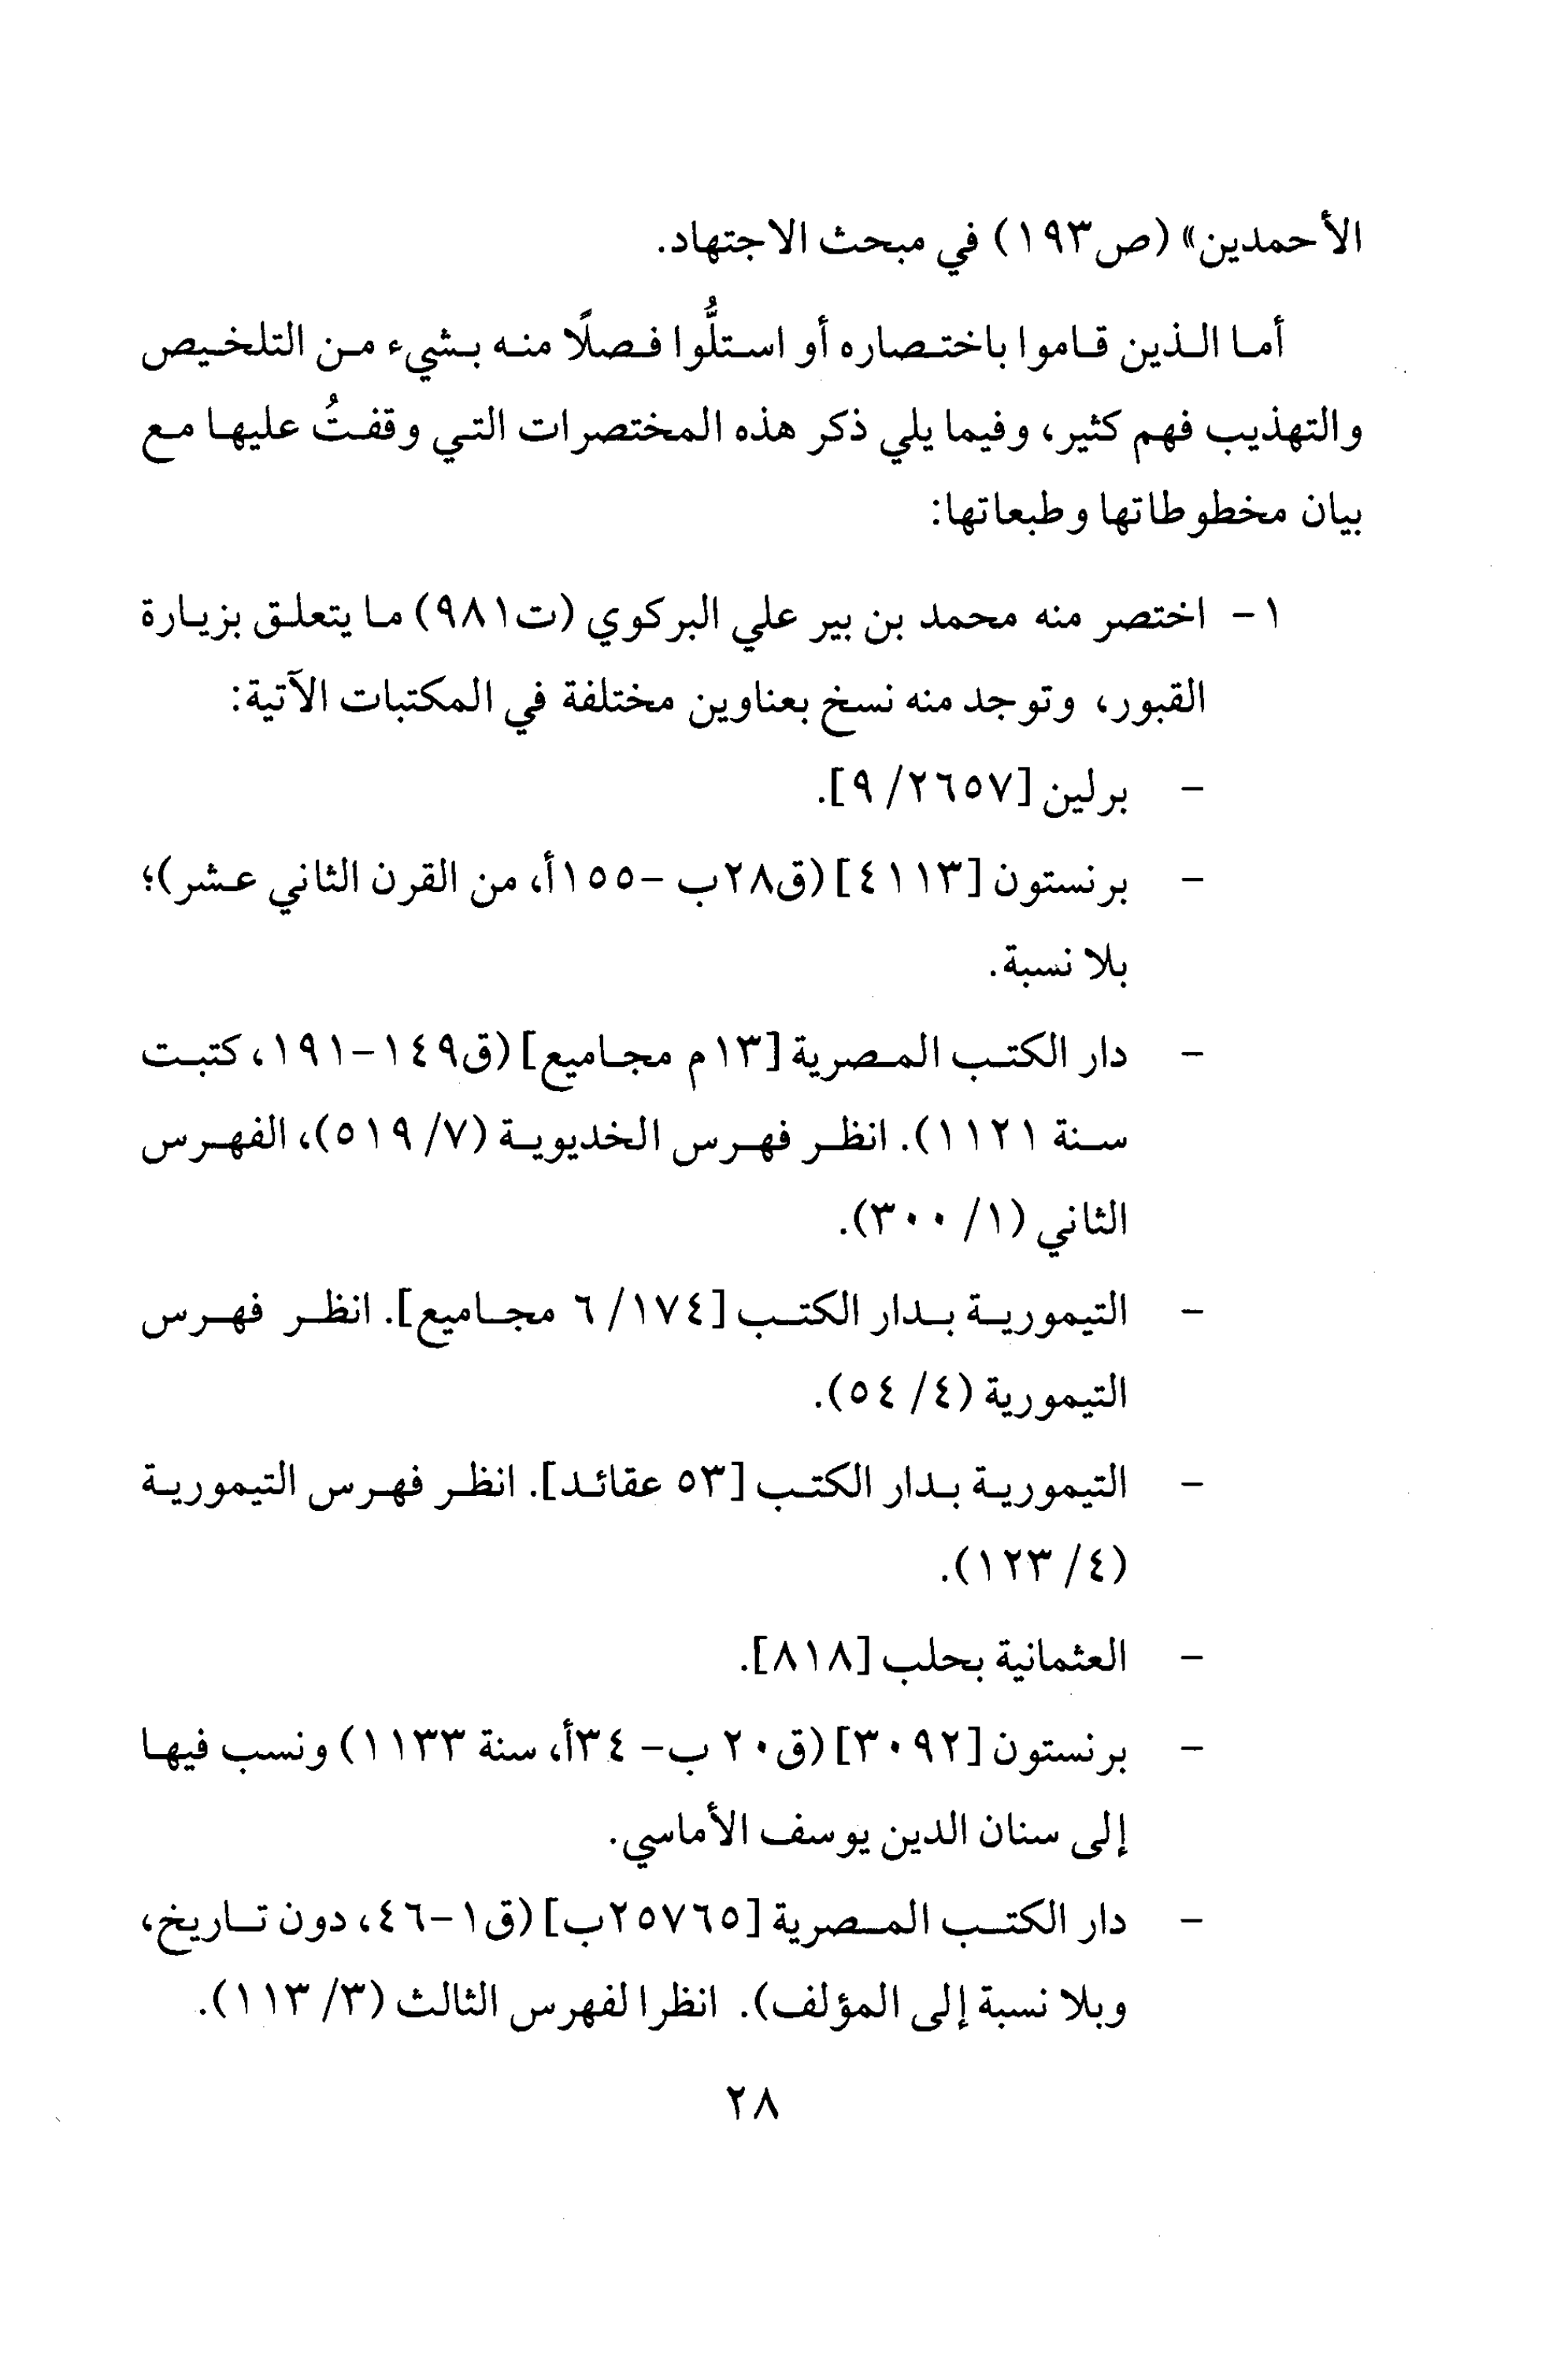 الأحمدين» (ص١٩٣) في مبحث الاجتهاد.
أما الذين قاموا باختصاره أو استلُّوا فصلًا منه بشيء من التلخيص
والتهذيب فهم كثير، وفيما يلي ذكر هذه المختصرات التي وقفتُ عليها مع
بيان مخطوطاتها وطبعاتها:
١- اختصر منه محمد بن بير علي البركوي (ت٩٨١) ما يتعلق بزيارة
القبور، وتوجد منه نسخ بعناوين مختلفة في المكتبات الآتية:
- برلين [٢٦٥٧/ ٩].
- برنستون [٤١١٣] (ق٢٨ب -١٥٥أ، من القرن الثاني عشر)؛
بلا نسبة.
- دار الكتب المصرية [١٣م مجاميع] (ق١٤٩-١٩١، كتبت
سنة ١١٢١). انظر فهرس الخديوية (٧/ ٥١٩)، الفهرس
الثاني (١/ ٣٠٠).
- التيمورية بدار الكتب [١٧٤/ ٦ مجاميع]. انظر فهرس
التيمورية (٤/ ٥٤).
- التيمورية بدار الكتب [٥٣ عقائد]. انظر فهرس التيمورية
(٤/ ١٢٣).
- العثمانية بحلب [٨١٨].
- برنستون [٣٠٩٢] (ق٢٠ ب- ٣٤أ، سنة ١١٣٣) ونسب فيها
إلى سنان الدين يوسف الأماسي.
- دار الكتب المصرية [٢٥٧٦٥ب] (ق١-٤٦، دون تاريخ،
وبلا نسبة إلى المؤلف). انظرا لفهرس الثالث (٣/ ١١٣).
٢٨